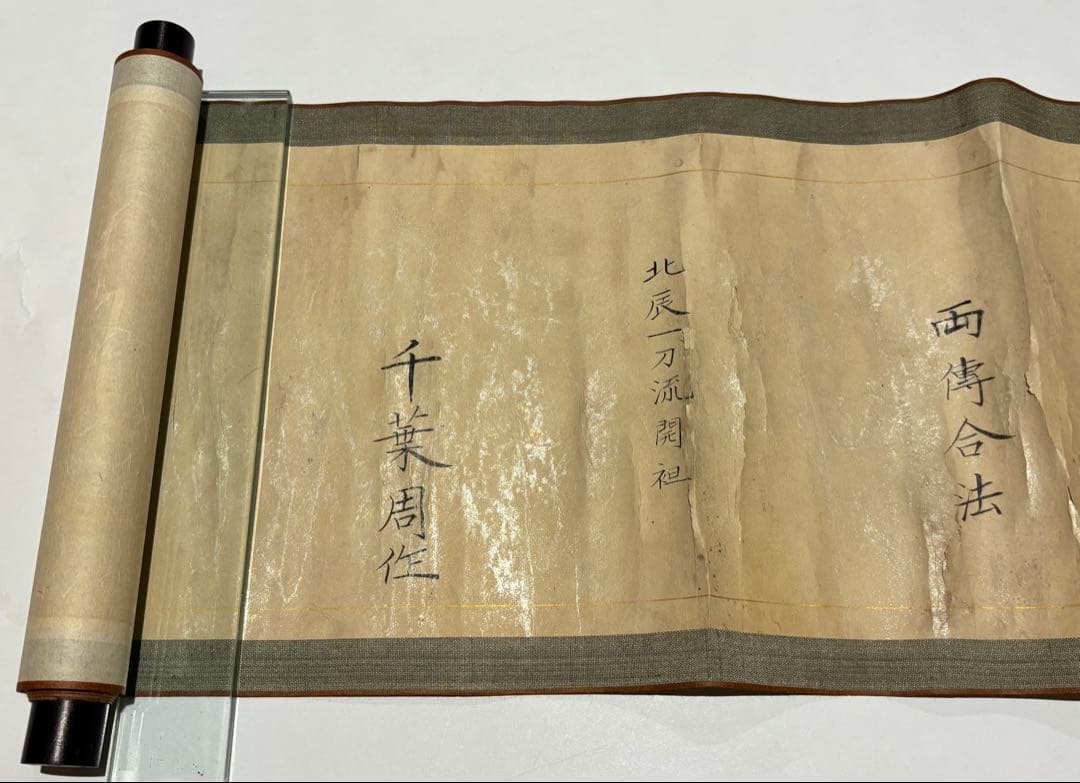 両傳合法
北辰一刀流開祖
千葉周作